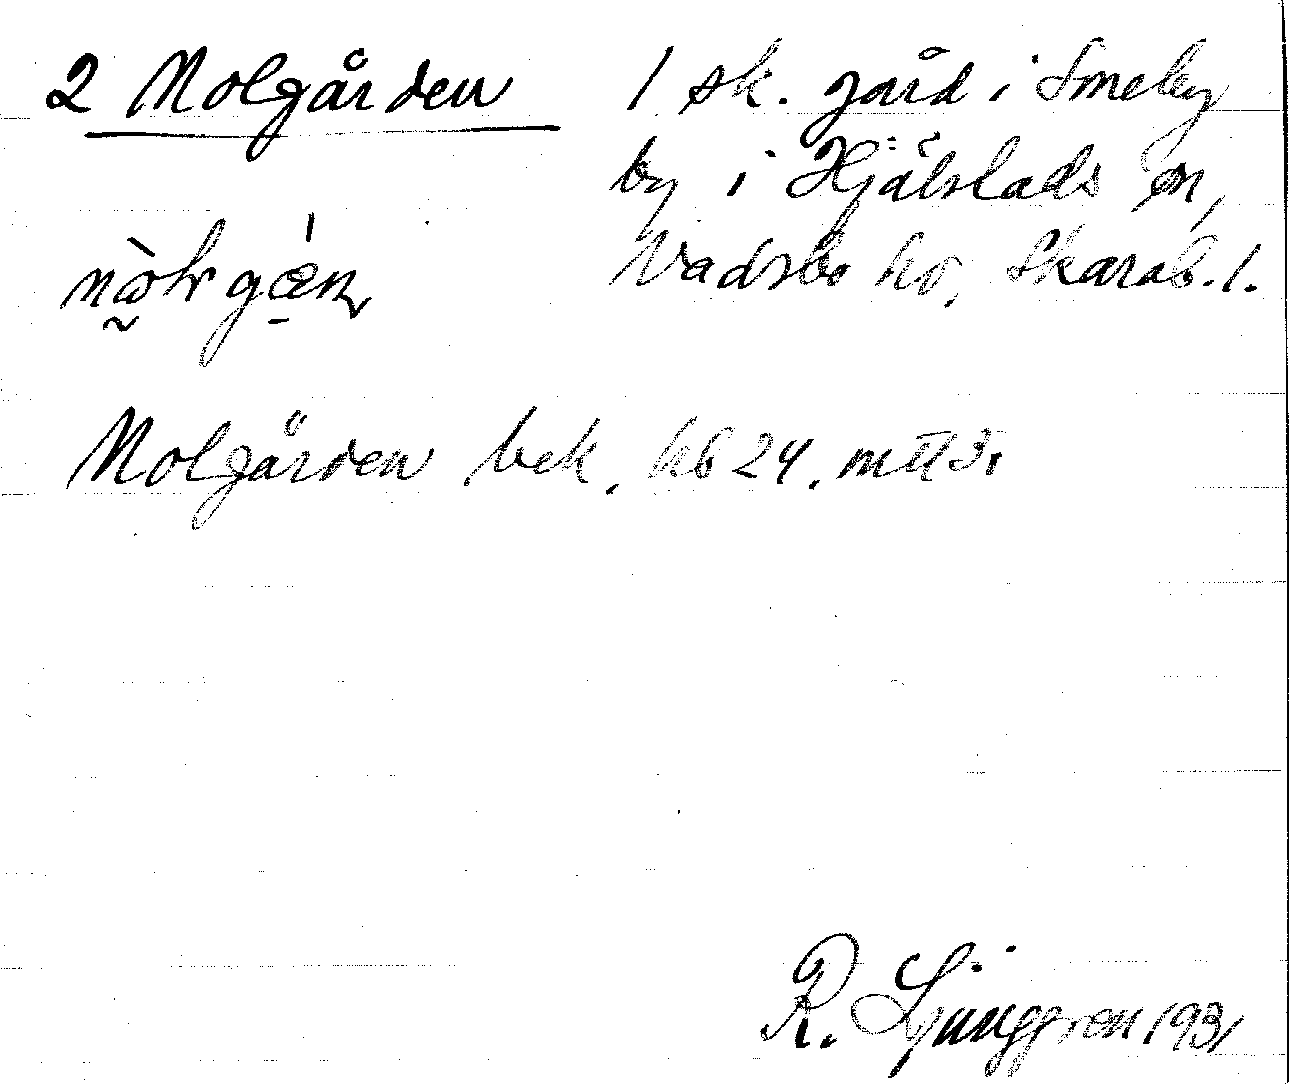 2 Nolgården
1 sk. gård i Smeby
by i Hjälstads sn,
Vadsbo hd, Skarab. l.
Nolgården bek. kb 24. mtl 3.
R. Ljunggren 1931